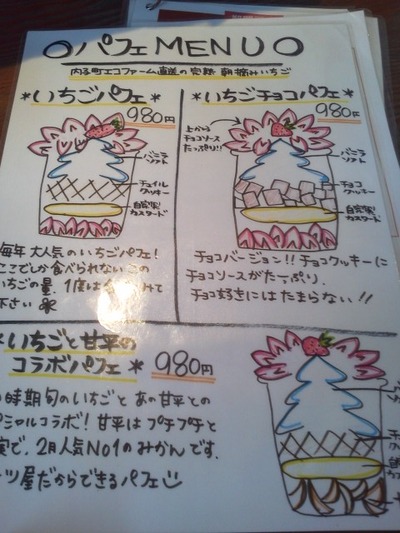 パフェMENU
内子町エコファーム直送の完熟朝摘みいちご
*いちごパフェ*
980円
バニラ
ソフト
チュイル
クッキー
自家製
カスタード
毎年大人気のいちごパフェ!
ここでしか食べられないこの
いちごの量。1度は
下さい
*いちごチョコパフェ*
980円
上から
チョコソース
たっぷり!!
バニラ
ソフト
チョコ
クッキー
自家製
カスタード
チョコバージョン!! チョコクッキーに
チョコソースがたーっぷり。
チョコ好きにはたまらない!!
いちごと甘平の
コラボパフェ* 980円
時期旬のいちごとあの甘平との
シャルコラボ! 甘平はプチプチと
実で、2月人気No1のみかんです。
ーツ屋だからできるパフェ